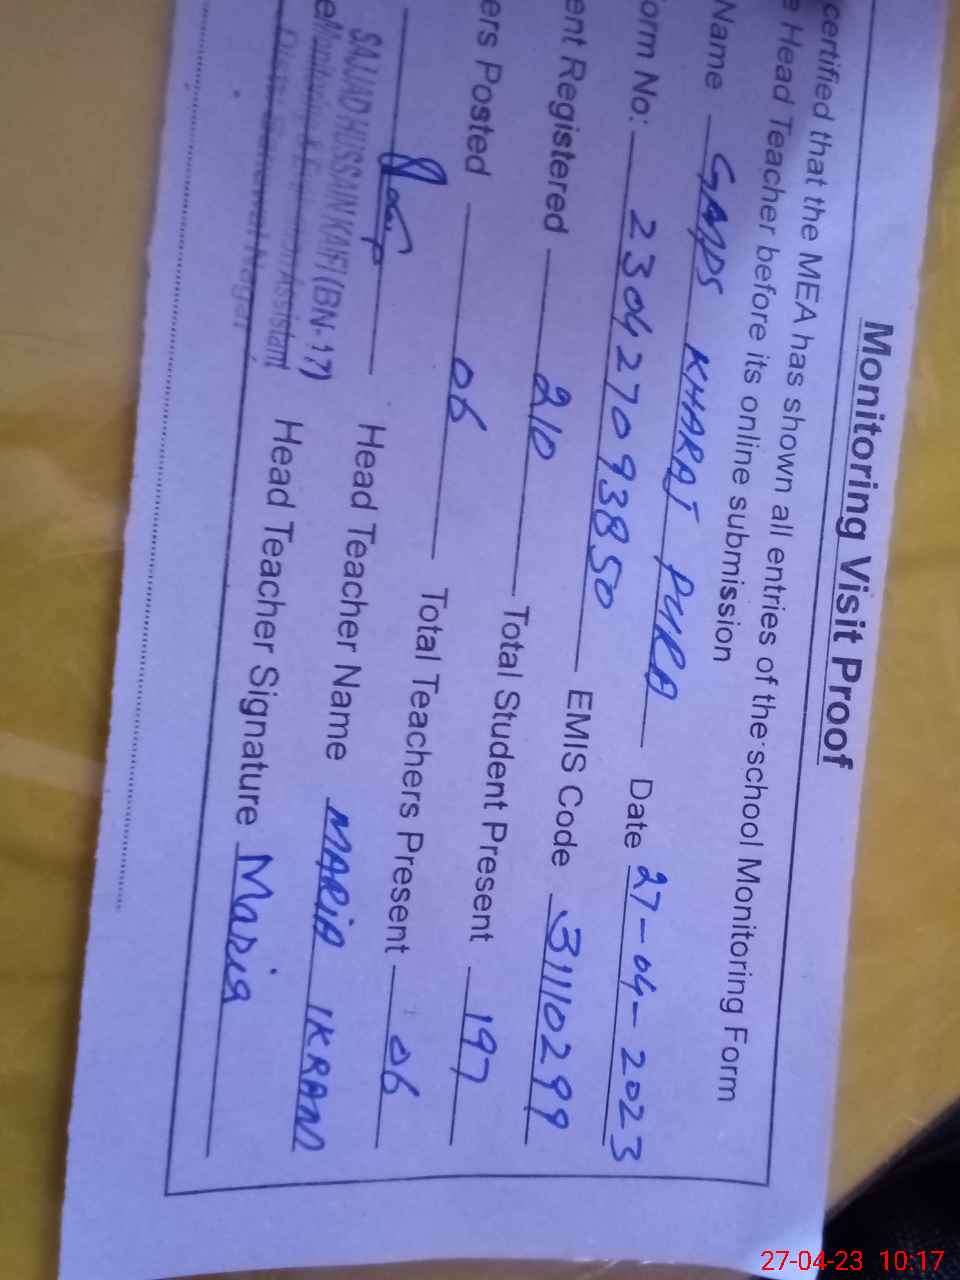 Monitoring Visit Proof
certified that the MEA has shown all entries of the school Monitoring Form
e Head Teacher before its online submission
Name GMPS KHARAJ PURA Date 27-04-2023
orm No: 230427093850 EMIS Code 31110299
ent Registered 210 Total Student Present 197
ers Posted 06 Total Teachers Present 06
Head Teacher Name MARIA IKRAM
SAJJAD HUSSAIN KAIFI (BN-17)
e Monitoring & Evaluation Assistant Head Teacher Signature Maria
District Bahawal Nagar
27-04-23 10:17